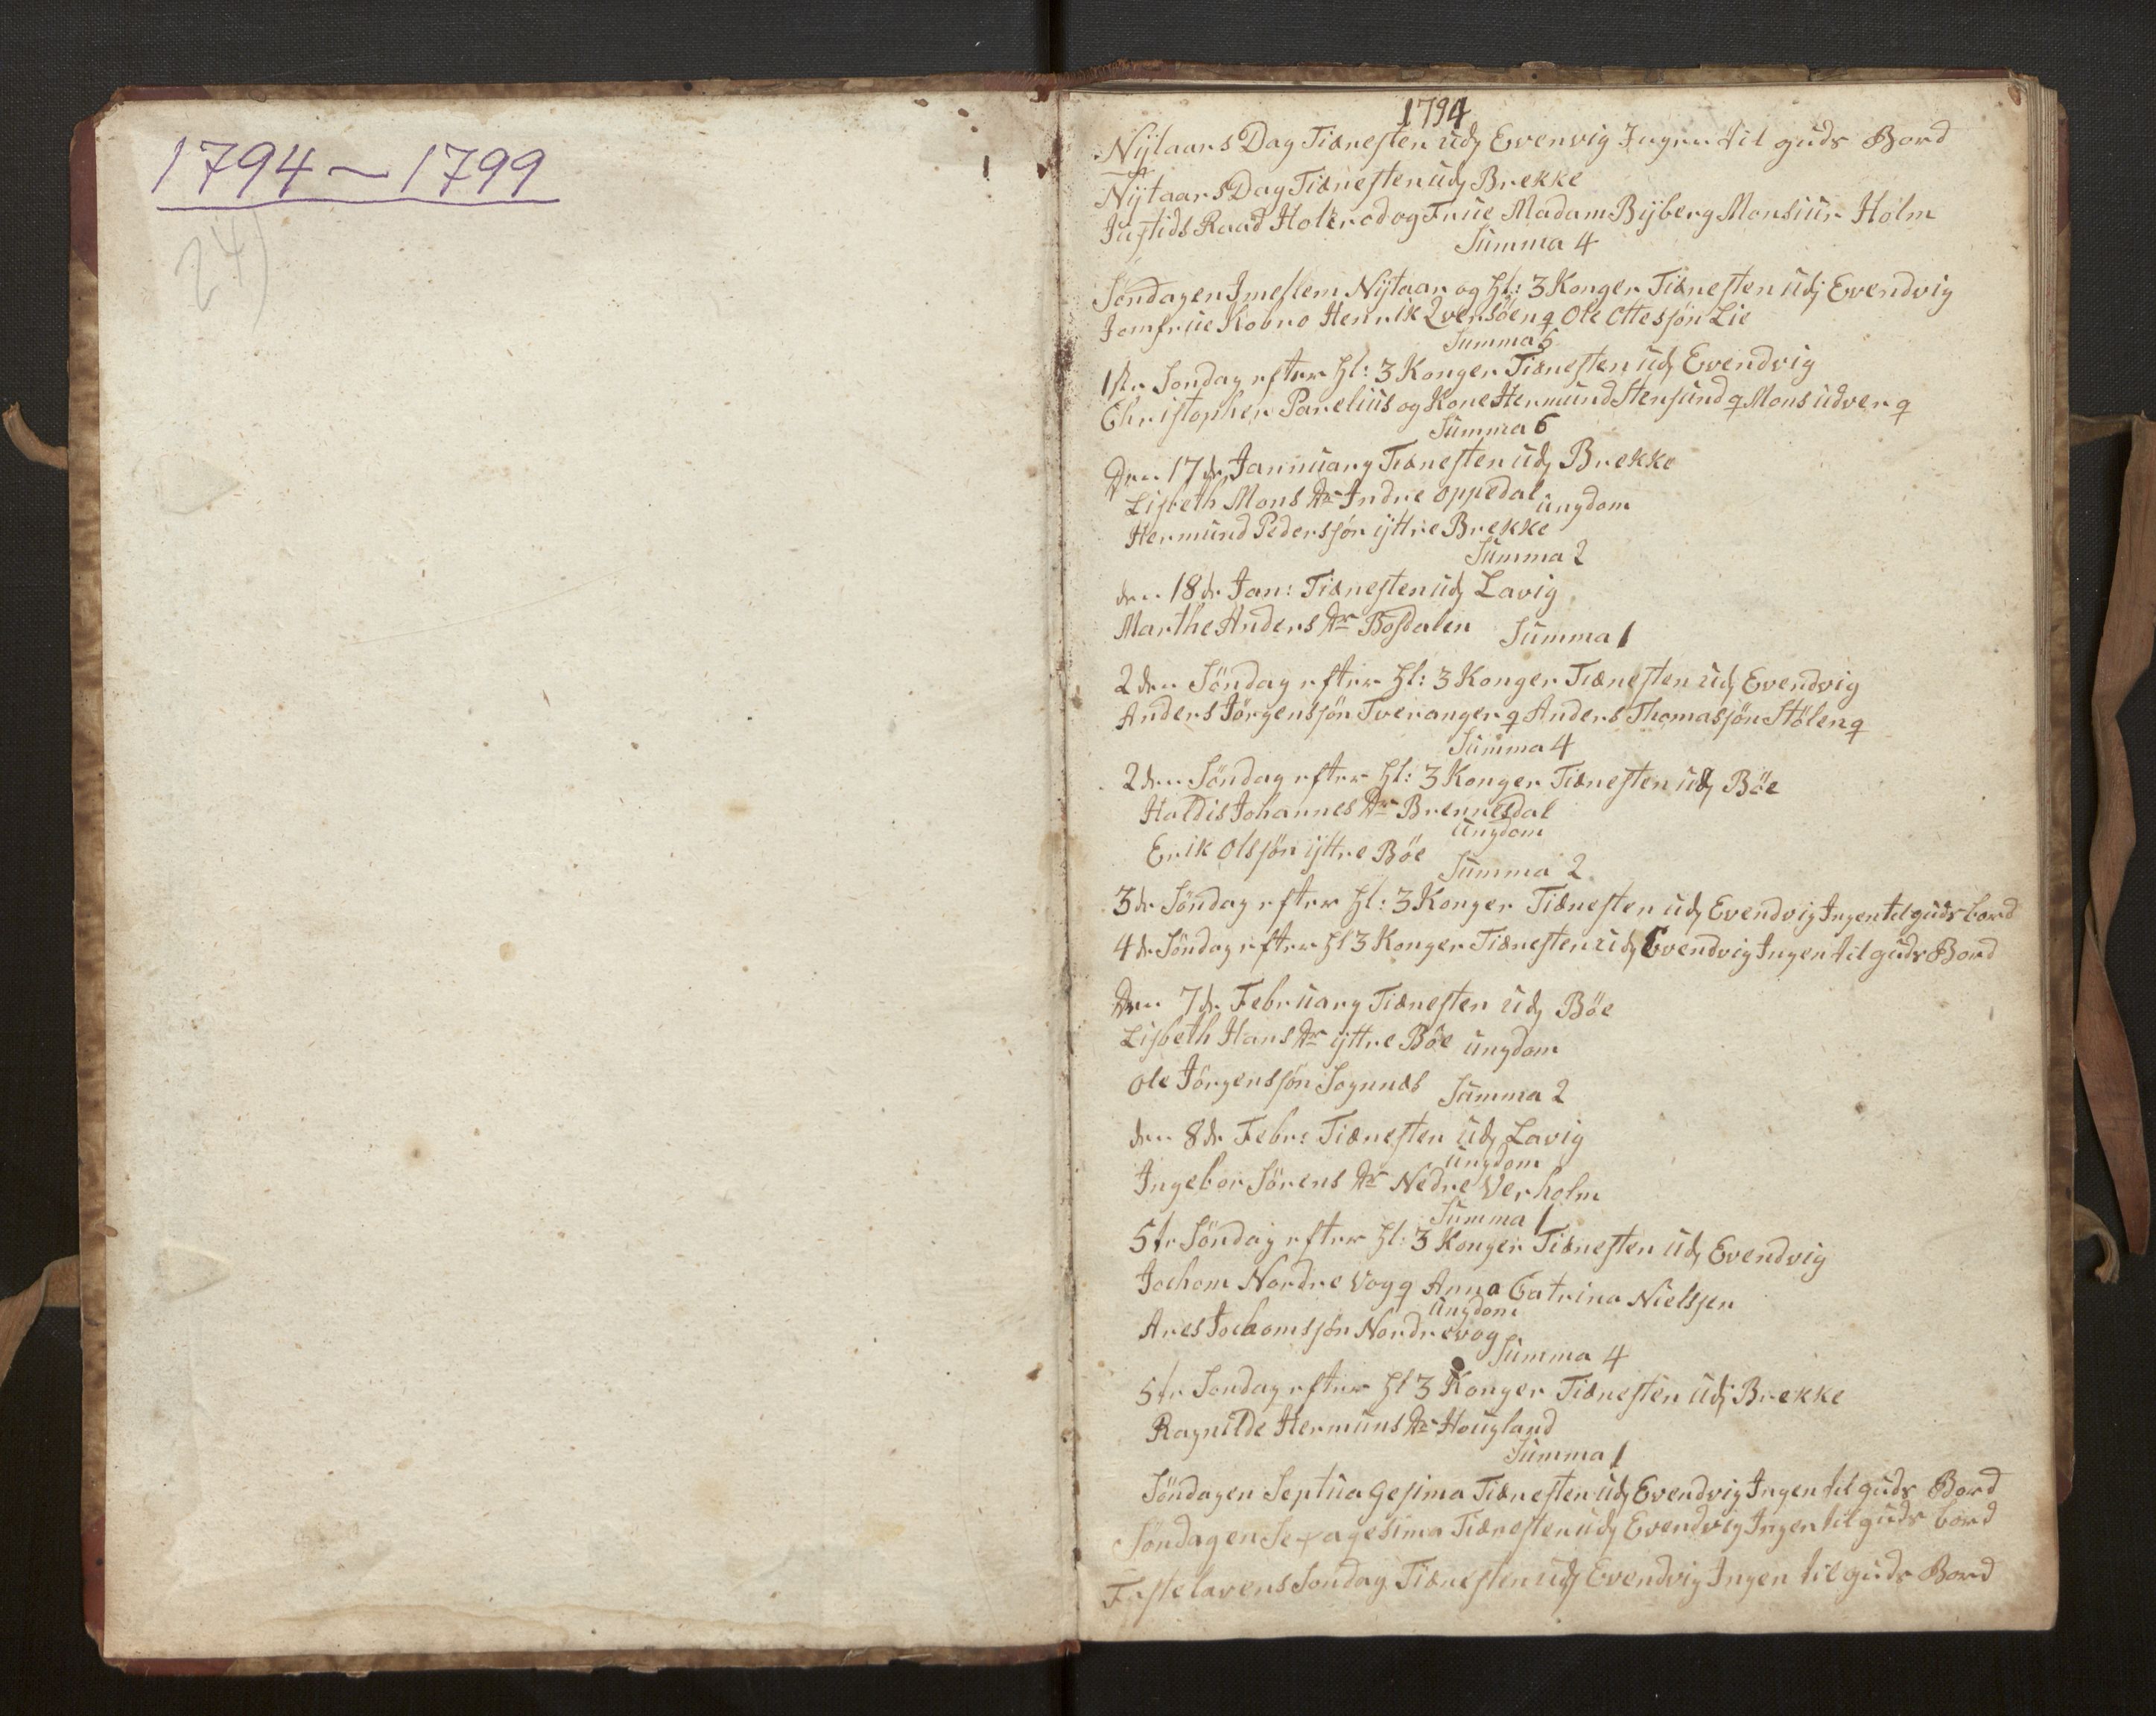 1794 – 1799
24)
1794
Nÿtaars Dag Tiænesten udj Evenvig Ingen til guds Bord
Nÿtaars Dag Tiænesten udj Brekke
Justids Raad Holerod og Frue Madam Bÿberg Monsiur Holm
Summa 4
Søndagen Imellem Nÿtaar og hl: 3 Konger Tiænesten udj Evendvig
Jomfrue Kobro Henrik q Ole Ottesøn Lie
Summa 5
1ste Søndag efter hl: 3 Konger Tiænesten udj Evendvig
Christopher Parelius og Kone Hermund Stensund q Mons udver q
Summa 6
Den 17de Jannuary Tiænesten udj Brekke
Lisbeth Mons dr Indre Oppedal
ungdom
Hermund Pedersøn ÿttre Brekke
Summa 2
den 18de Jan: Tiænesten udj Lavig
Marthe Anders dr Bosdalen Summa 1
2den Søndag efter hl: 3 Konger Tiænesten udj Evendvig
Anders Jørgensøn Tveranger q Anders Thomasøn Stølen q
Summa 4
2den Søndag efter hl: 3 Konger Tiænesten udj Bøe
Haldis Johannes dr Brennesdal
ungdom
Erik Olsøn ÿttre Bøe
Summa 2
3de Søndag efter hl: 3 Konger Tiænesten udj Evendvig Ingen til guds bord
4de Søndag efter hl 3 Konger Tiænesten udj Evendvig Ingen til guds Bord
Den 7de February Tiænesten udj Bøe
Lisbeth Hans dr ÿttre Bøe ungdom
Ole Jørgensøn Sognnæs Summa 2
den 8de Febr: Tiænesten udj Lavig
ungdom
Ingebor Sørens dr Nedre Verholm
Summa 1
5te Søndag efter hl: 3 Konger Tiænesten udj Evendvig
Jochom Nordre Vog q Anna Catrina Nielssen
ungdom
Anes Jochomsøn Nordrevog
Summa 4
5te Søndag efter hl 3 Konger Tiænesten udj Brekke
Ragnilde Hermuns dr Hougland
Summa 1
Søndagen Septuagesima Tiænesten udj Evendvig Ingen til guds Bord
Søndagen Sexagesima Tiænesten udj Evendvig Ingen til guds bord
Fastelavens Søndag Tiænesten udj Evendvig Ingen til guds Bord